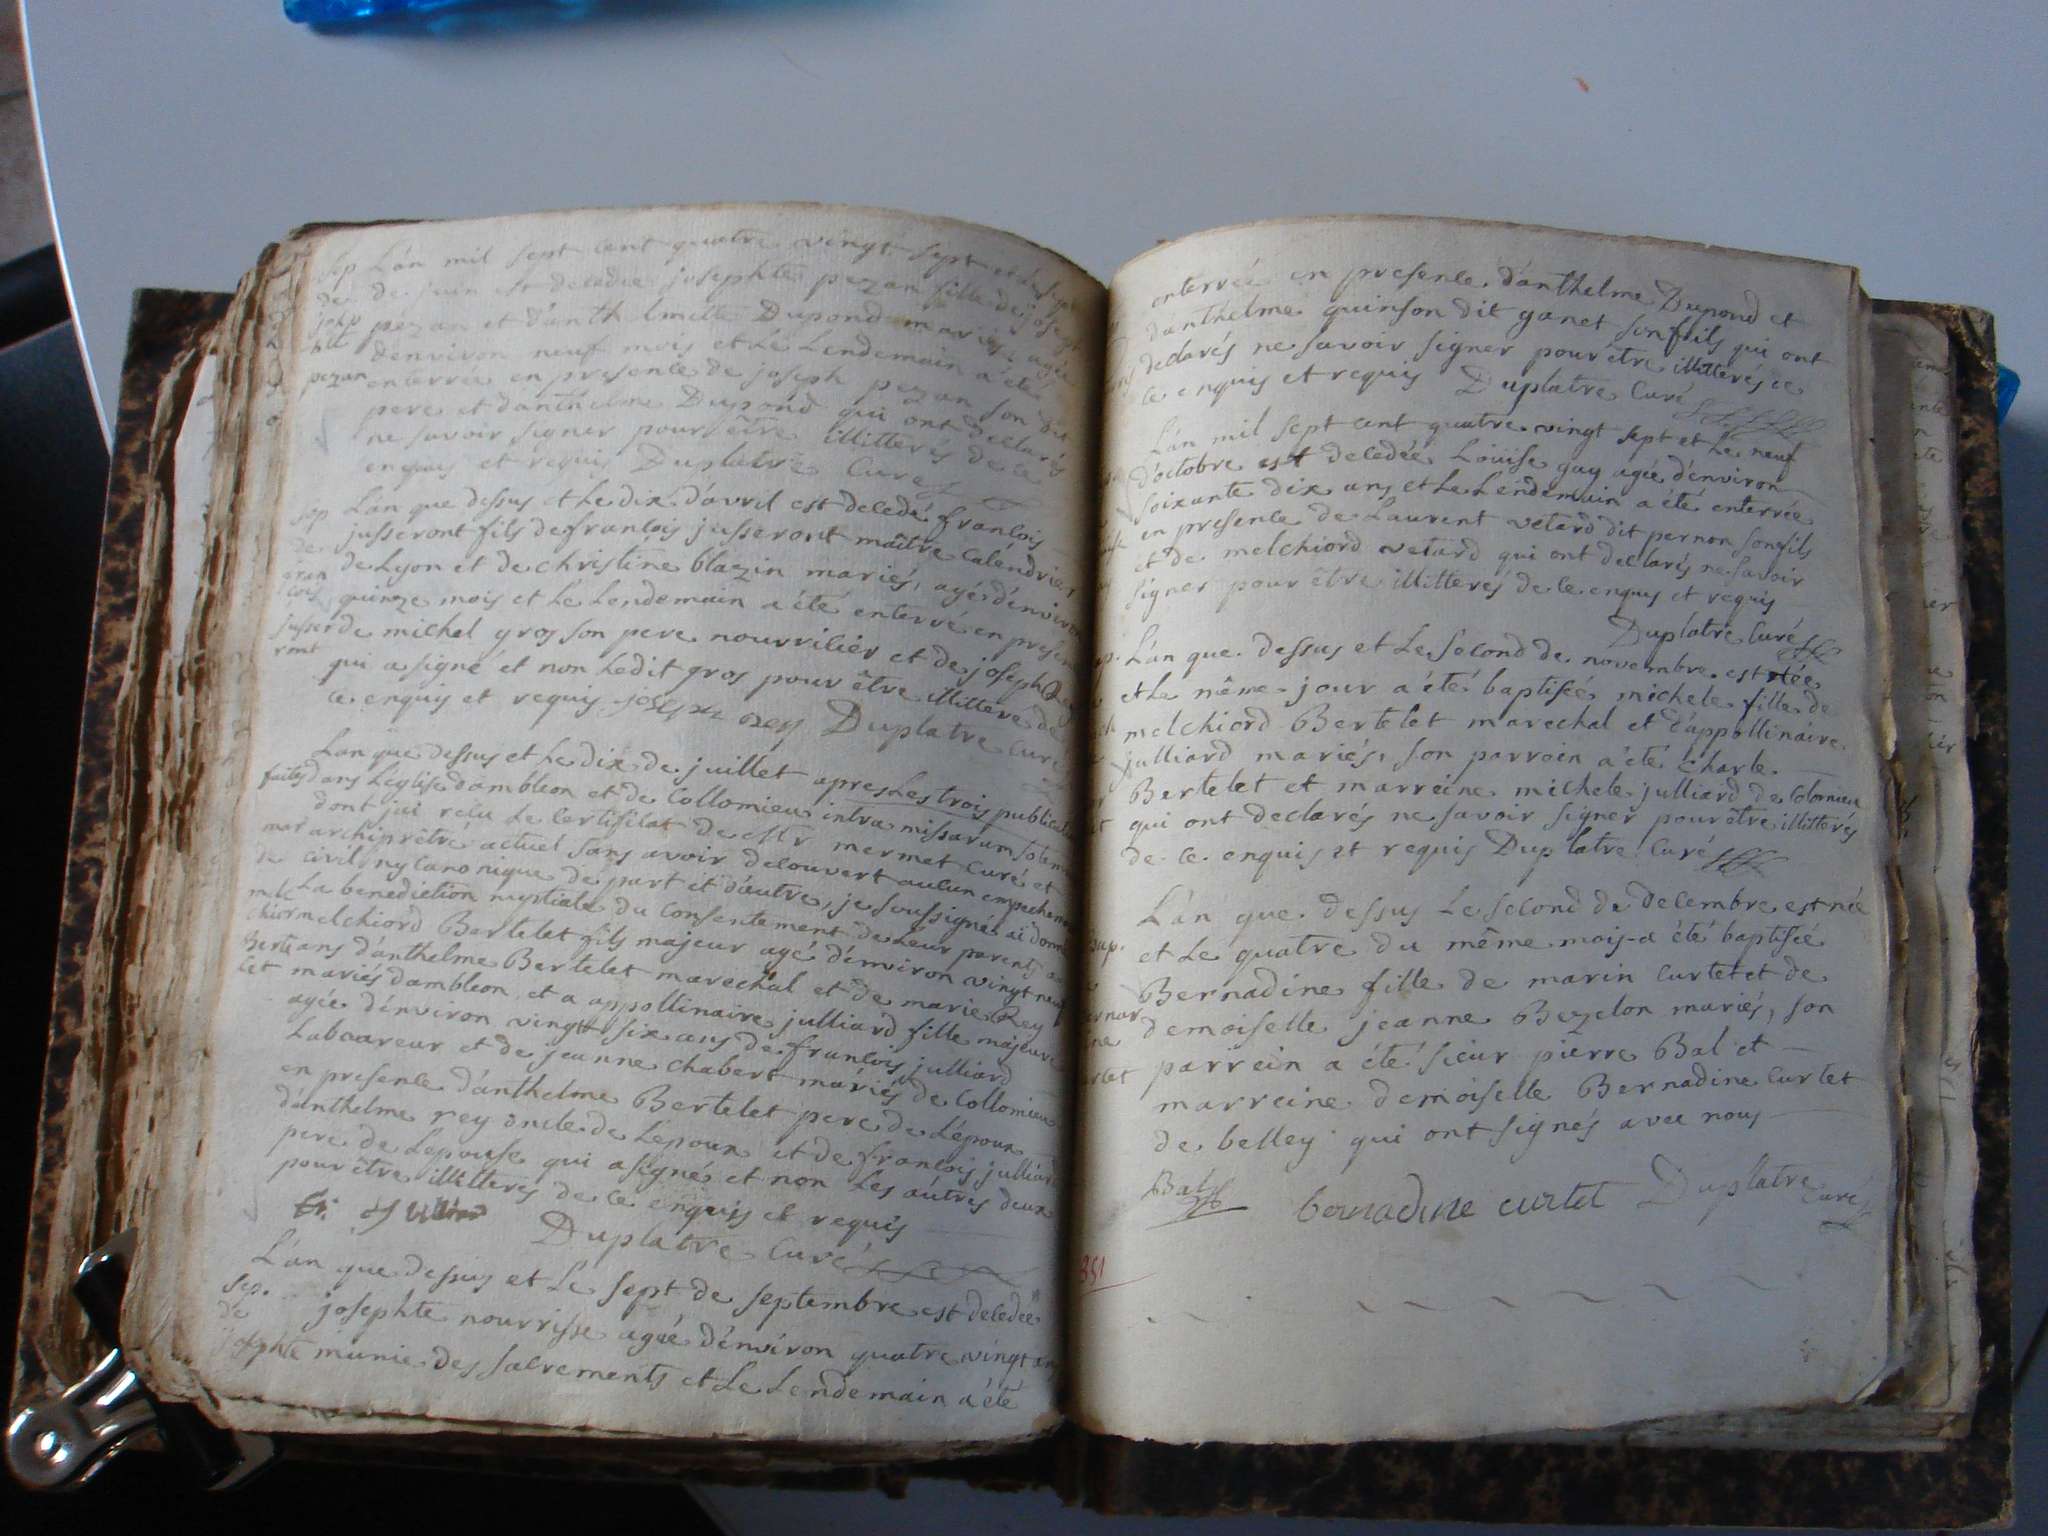 L'an mil sept cent quatre vingt sept et le sept
de juin est decedée josephte pezan fille de joseph
pezan et d'anthelmette Dupond mariés, agée
d'environ neuf mois et Le Lendemain a été
enterrée en presence de joseph pezan son dit
pere et d'anthelme Dupond qui ont declarés
ne savoir signer pour être illitterés de ce
enquis et requis Duplatre Curé
sep
de
josep
hte
pezan
L'an que dessus et Le dix d'avril est decedé francois
jusseront fils de francois jusseront maitre Calendrier
de Lyon et de christine blazin mariés, agé d'environ
quinze mois et Le Lendemain a été enterré en présen
de michel gros son pere nourricier et de joseph Rey
qui a signé et non Ledit gros pour être illitteré de
ce enquis et requis joseph rey Duplatre Curé
sep
de
fran
cois
jusse
ront
L'an que dessus et Le dix de juillet apres Les trois publica
faites dans L'église d'ambleon et de Collomieu intra missarum solem
dont jai recu Le Certificat de Mr mermet Curé et
archiprêtré actuel sans avoir decouvert aucun empecheme
civil ny Canonique de part et d'autre, je soussigné ai donné
La benediction nuptiale du Consentement de Leur parents a
melchiord Bertelet fils majeur agé d'environ vingt neuf
ans d'anthelme Bertelet marechal et de marie Rey
mariés d'ambleon et a appollinaire julliard fille majeure
agée d'environ vingt six ans de francois julliard
Laboureur et de jeanne Chabert mariés de Collomieu
en presence d'anthelme Bertelet pere de L'époux
d'anthelme rey oncle de Lepoux et de francois julliard
pere de Lepouse qui a signé et non Les autres deux
pour être illitterés de ce enquis et requis
mar
de
mel
chior
Berte
let
fr. julliard Duplatre Curé
L'an que dessus et Le sept de septembre est decedée
josephte nourrisse agée d'environ quatre vingt ans
munie des sacrements et Le Lendemain a été
sep.
de
josephte
enterrée en presence d'anthelme Dupond et
d'anthelme quinson dit ganet son fils qui ont
declarés ne savoir signer pour être illitterés de
ce enquis et requis Duplatre Curé
L'an mil sept cent quatre vingt sept et Le neuf
d'octobre est decedée Louise gay agée d'environ
soixante dix ans et Le Lendemain a été enterrée
en presence de Laurent vetard dit pernon son fils
et de melchiord vetard qui ont declarés ne savoir
signer pour être illitterés de ce enquis et requis
Duplatre Curé
L'an que dessus et Le second de novembre est née
et Le même jour a été baptisée michele fille de
melchiord Bertelet marechal et d'appollinaire
julliard mariés, son parrain a été Charle
Bertelet et marreine michele julliard de Colomieu
qui ont declarés ne savoir signer pour être illitterés
de ce enquis et requis Duplatre Curé
L'an que dessus Le second de Decembre est née
et Le quatre du même mois a été baptisée
Bernadine fille de marin Curtet et de
demoiselle jeanne Bezelon mariés, son
parrein a été sieur pierre Bal et
marreine demoiselle Bernadine Curtet
de belley qui ont signés avec nous
Bal bernadine curtet Duplatre
Curé
351